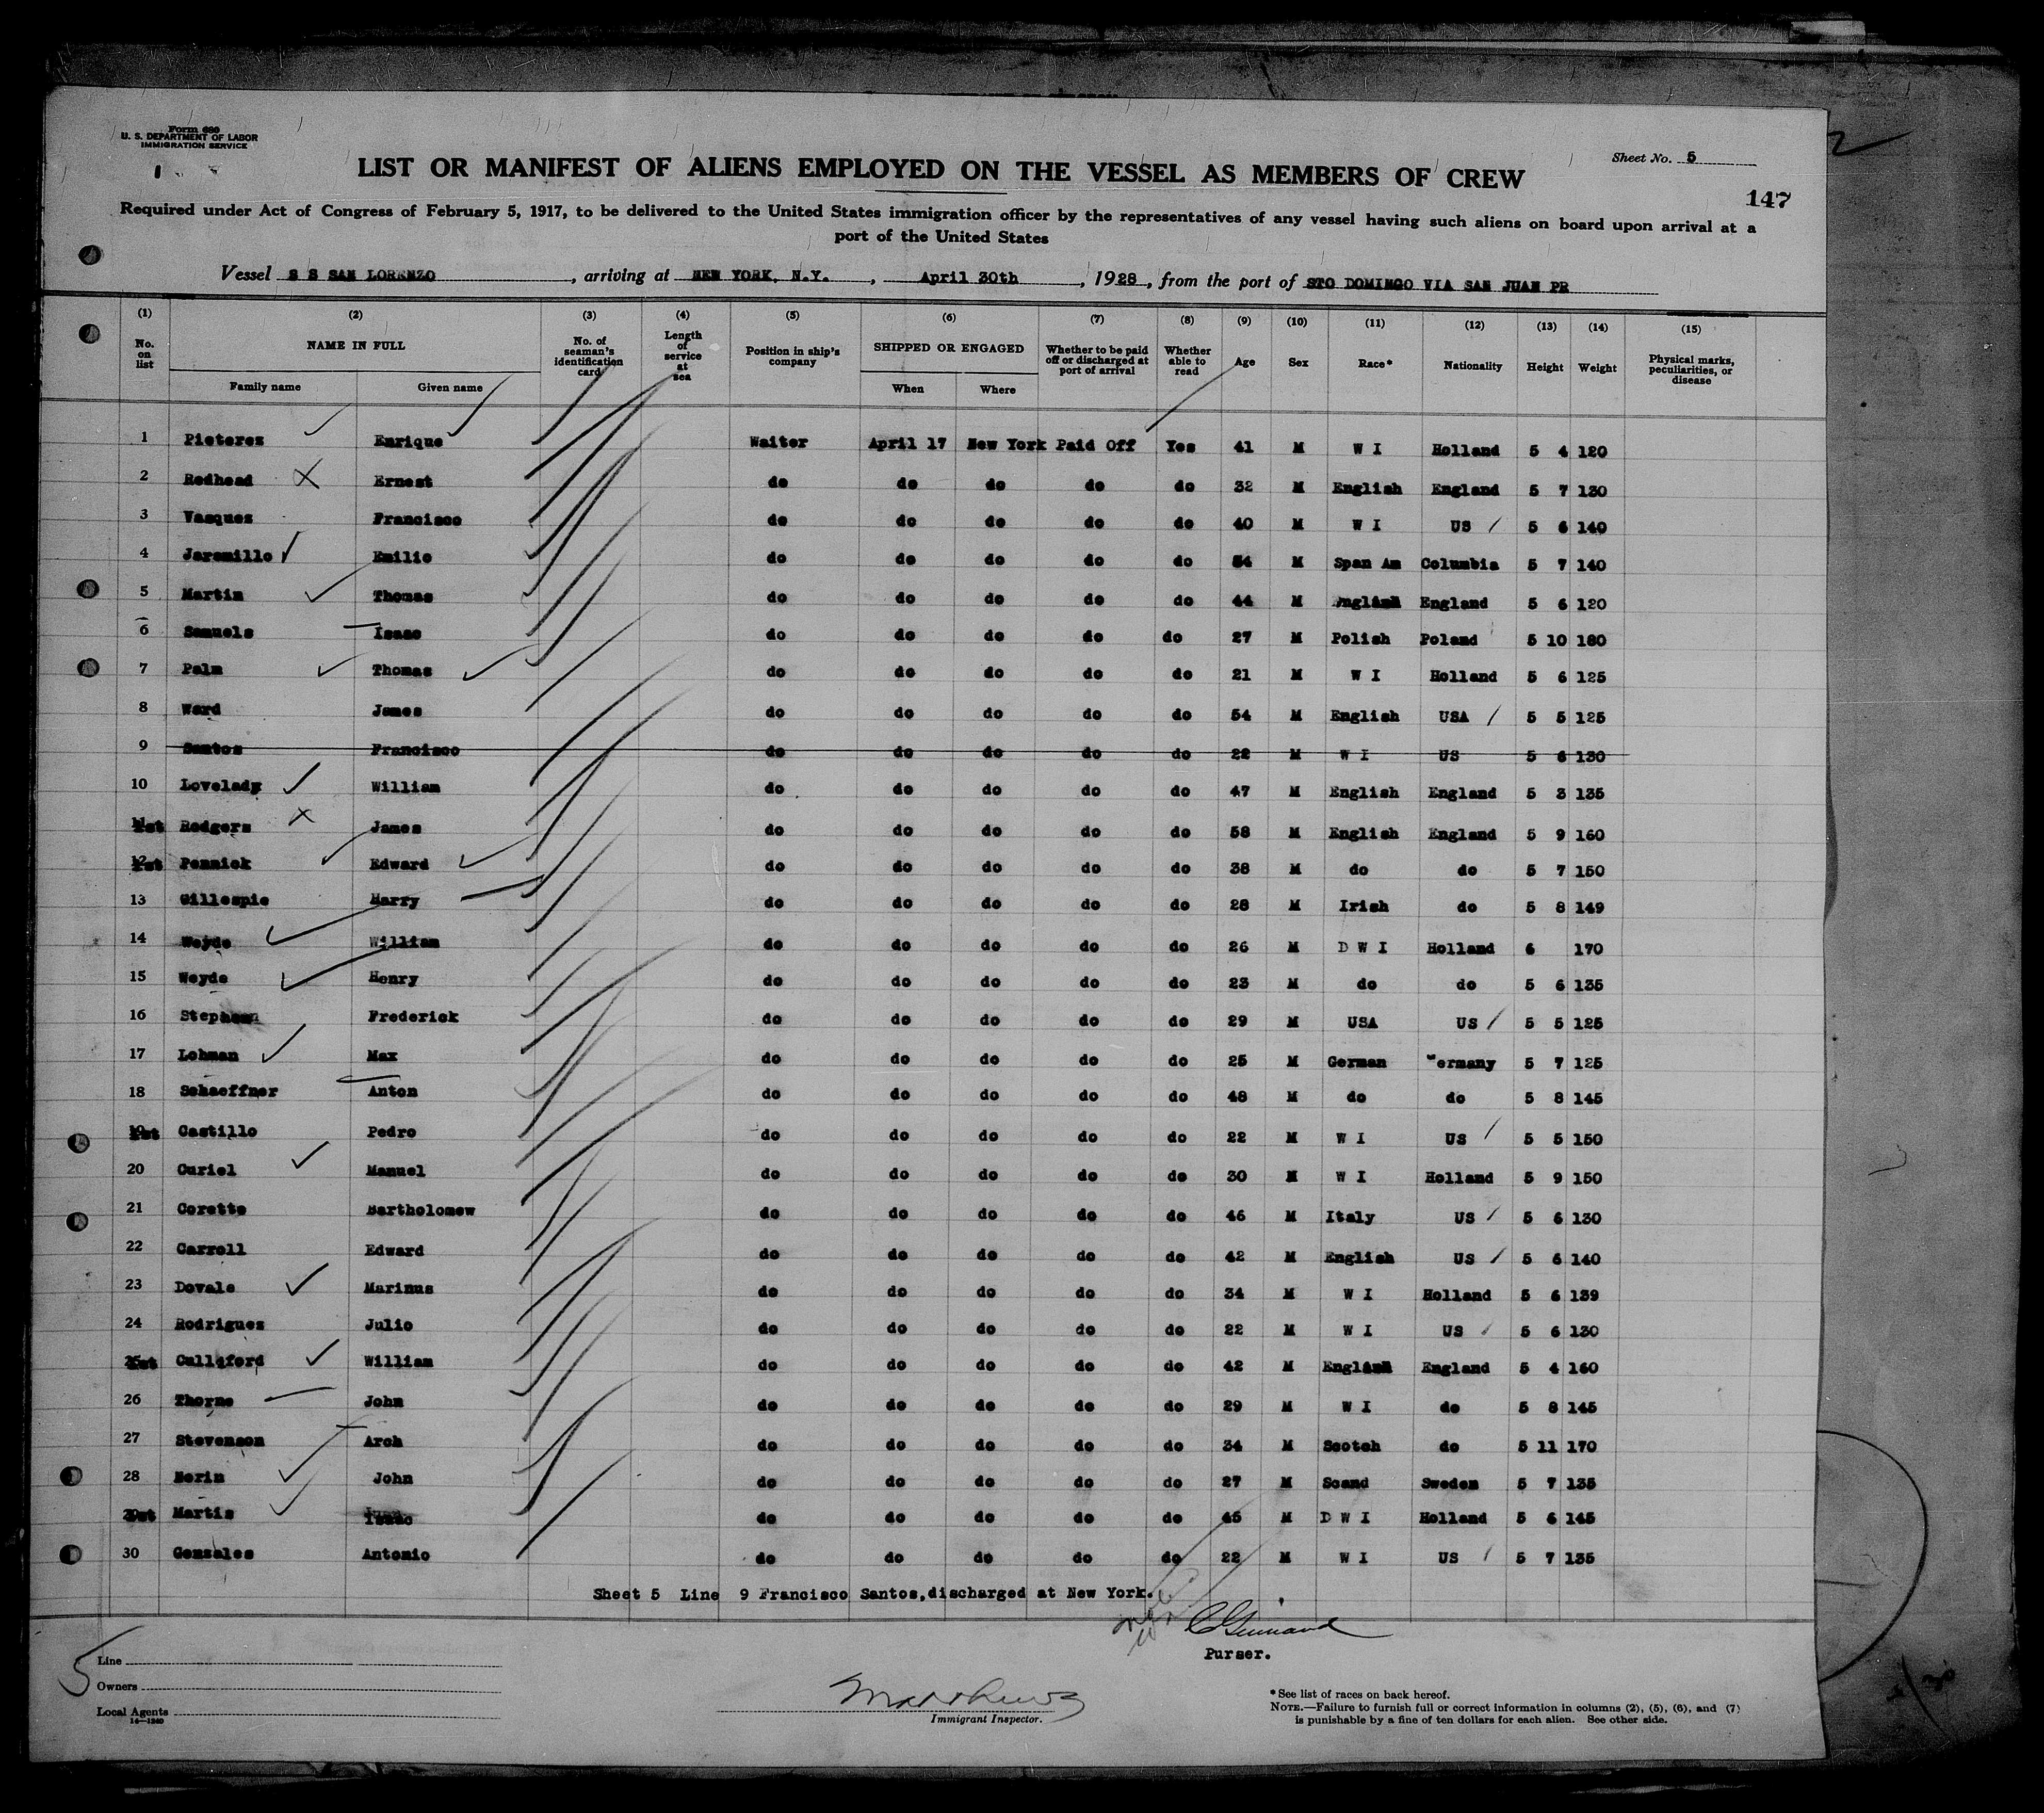 Form 680
U. S. DEPARTMENT OF LABOR
IMMIGRATION SERVICE
Sheet No. 5
LIST OR MANIFEST OF ALIENS EMPLOYED ON THE VESSEL AS MEMBERS OF CREW
147
Required under Act of Congress of February 5, 1917, to be delivered to the United States immigration officer by the representatives of any vessel having such aliens on board upon arrival at a
port of the United States
Vessel S S SAN LORENZO, arriving at NEW YORK, N.Y., April 30th, 1928, from the port of STO DOMINGO VIA SAN JUAN PR
(1) (2) (3) (4) (5) (6) (7) (8) (9) (10) (11) (12) (13) (14) (15)
No. on list NAME IN FULL Family name Given name No. of seaman's identification card Length of service at sea Position in ship's company SHIPPED OR ENGAGED When Where Whether to be paid off or discharged at port of arrival Whether able to read Age Sex Race* Nationality Height Weight Physical marks, peculiarities, or disease
1 Pieteres Enrique Waiter April 17 New York Paid Off Yes 41 M W I Holland 5 4 120
2 Redhead Ernest do do do do do 32 M English England 5 7 130
3 Vasques Francisco do do do do do 40 M W I US 5 6 140
4 Jaramillo Emilio do do do do do 54 M Span Am Columbia 5 7 140
5 Martin Thomas do do do do do 44 M English England 5 6 120
6 Samuels Isaac do do do do do 27 M Polish Poland 5 10 180
7 Palm Thomas do do do do do 21 M W I Holland 5 6 125
8 Ward James do do do do do 54 M English USA 5 5 125
9 Santos Francisco do do do do do 22 M W I US 5 6 130
10 Lovelady William do do do do do 47 M English England 5 3 135
11 Rodgers James do do do do do 58 M English England 5 9 160
12 Pennick Edward do do do do do 38 M do do 5 7 150
13 Gillespie Harry do do do do do 28 M Irish do 5 8 149
14 Weyde William do do do do do 26 M D W I Holland 6 170
15 Weyde Henry do do do do do 23 M do do 5 6 135
16 Stephens Frederick do do do do do 29 M USA US 5 5 125
17 Lohman Max do do do do do 25 M German Germany 5 7 125
18 Schaeffner Anton do do do do do 48 M do do 5 8 145
19 Castillo Pedro do do do do do 22 M W I US 5 5 150
20 Curiel Manuel do do do do do 30 M W I Holland 5 9 150
21 Corette Bartholomew do do do do do 46 M Italy US 5 6 130
22 Carroll Edward do do do do do 42 M English US 5 6 140
23 Dovale Marinus do do do do do 34 M W I Holland 5 6 139
24 Rodrigues Julio do do do do do 22 M W I US 5 6 130
25 Culliford William do do do do do 42 M English England 5 4 160
26 Thorne John do do do do do 29 M W I do 5 8 145
27 Stevenson Arch do do do do do 34 M Scotch do 5 11 170
28 Nerin John do do do do do 27 M Scand Sweden 5 7 135
29 Martis Isaac do do do do do 45 M D W I Holland 5 6 145
30 Gonzales Antonio do do do do do 22 M W I US 5 7 135
Sheet 5 Line 9 Francisco Santos,discharged at New York.
Purser.
5
Line
Owners
Local Agents
14—1240
Immigrant Inspector.
*See list of races on back hereof.
NOTE.—Failure to furnish full or correct information in columns (2), (5), (6), and (7)
is punishable by a fine of ten dollars for each alien. See other side.